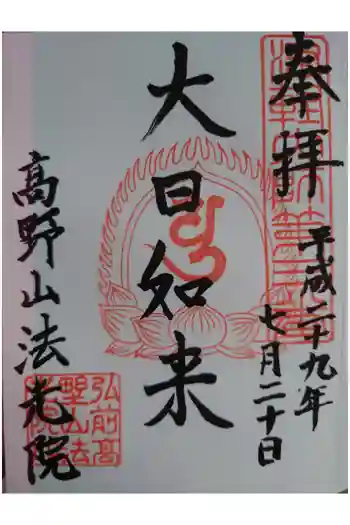 奉拝
平成二十九年
七月二十日
大日如来
高野山法光院
弘前高
野山法
光院